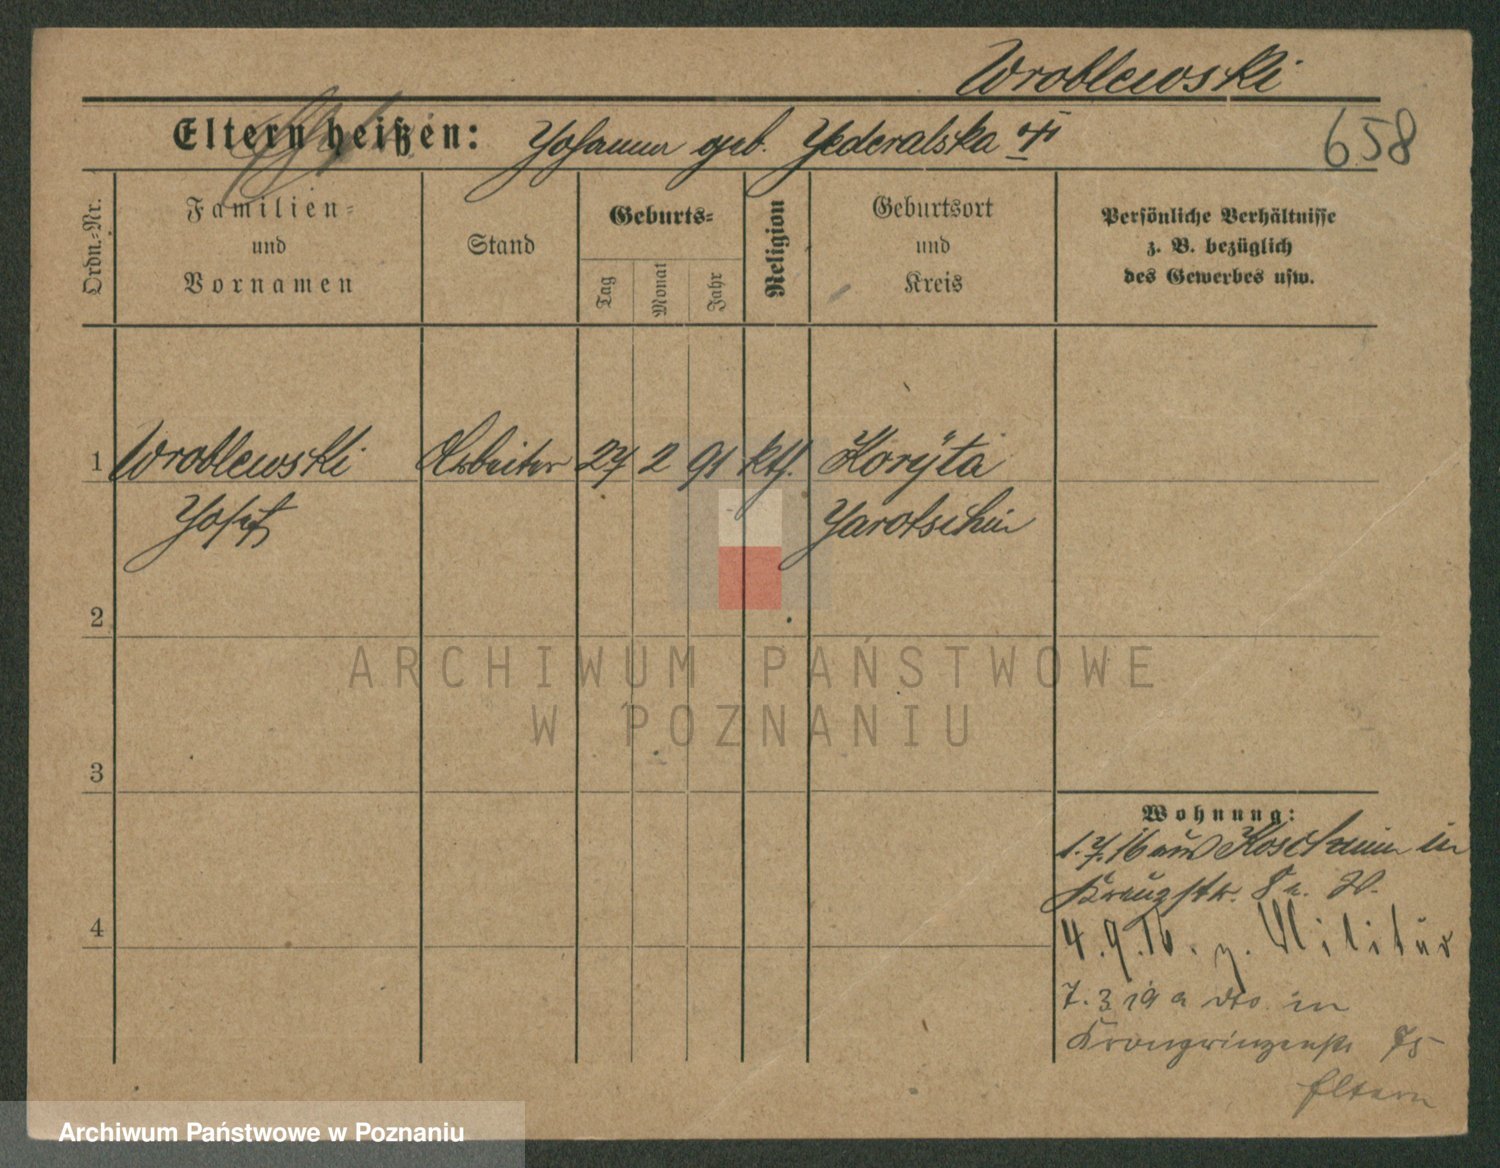 Wroblewski
Eltern heißen: Johanna geb. Jederalska
658
Ordn.-Nr.
Familien-
und
Vornamen
Stand
Geburts-
Tag
Monat
Jahr
Religion
Geburtsort
und
Kreis
Persönliche Verhältnisse
z. B. bezüglich
des Gewerbes usw.
1 Wroblewski Arbeiter 27 2 91 kth. Koryta
Josef Jarotschin
2
ARCHIWUM PAŃSTWOWE
W POZNANIU
3
Wohnung:
1.7.16 aus Koschmin in
Kreuzstr. 8 a.
4
4.9.16. z. Militär
7.3 19 a dto. in
Kronprinzenstr 75
Eltern
Archiwum Państwowe w Poznaniu